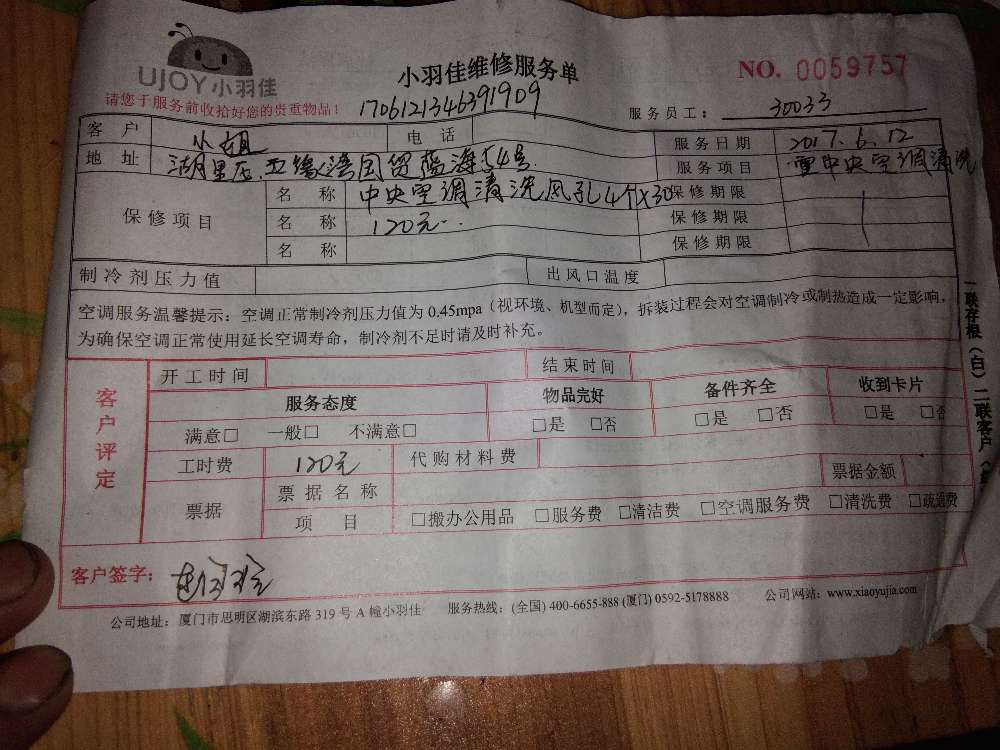 UJOY小羽佳
小羽佳维修服务单
NO. 0059757
请您于服务前收拾好您的贵重物品！
1706121346391909
服务员工： 30033
客 户 小姐 电 话 服务日期 2017.6.12
地 址 湖里区.五缘湾国贸蓝海54号 服务项目 中央空调清洗
保修项目
名 称 中央空调清洗风孔4个X30 保修期限
名 称 120元 保修期限
名 称 保修期限
制冷剂压力值 出风口温度
空调服务温馨提示：空调正常制冷剂压力值为 0.45mpa（视环境、机型而定），拆装过程会对空调制冷或制热造成一定影响，
为确保空调正常使用延长空调寿命，制冷剂不足时请及时补充。
客户评定
开工时间 结束时间
服务态度 物品完好 备件齐全 收到卡片
满意□ 一般□ 不满意□ □是 □否 □是 □否 □是 □否
工时费 120元 代购材料费
票据 票据名称 票据金额
项 目 □搬办公用品 □服务费 □清洁费 □空调服务费 □清洗费 □疏通费
客户签字：
公司地址：厦门市思明区湖滨东路 319 号 A 幢小羽佳 服务热线：(全国) 400-6655-888 (厦门) 0592-5178888 公司网站：www.xiaoyujia.com
一联存根（白）二联客户